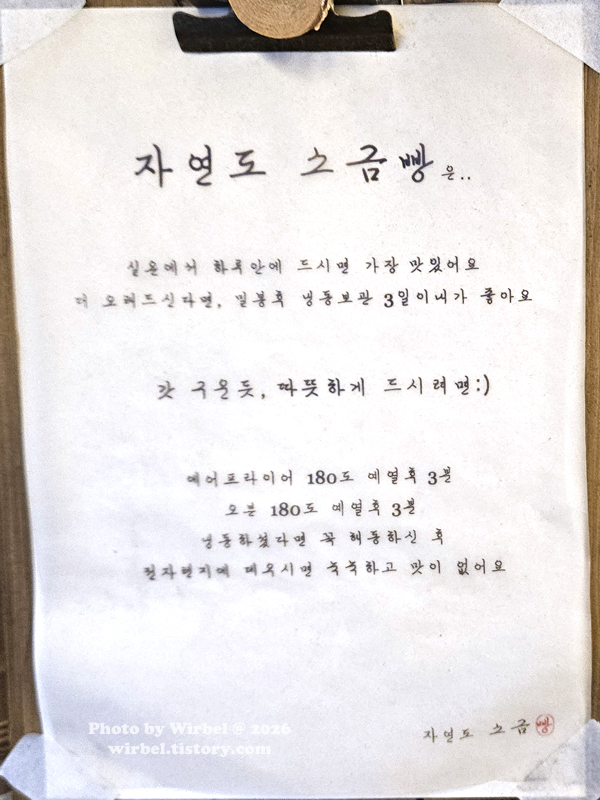 자연도 소금빵은..
실온에서 하루안에 드시면 가장 맛있어요
더 오래드신다면, 밀봉후 냉동보관 3일이내가 좋아요
갓 구운듯, 따뜻하게 드시려면:)
에어프라이어 180도 예열후 3분
오븐 180도 예열후 3분
냉동하셨다면 꼭 해동하신 후
전자렌지에 데우시면 눅눅하고 맛이 없어요
자연도 소금빵
Photo by Wirbel © 2026
wirbel.tistory.com